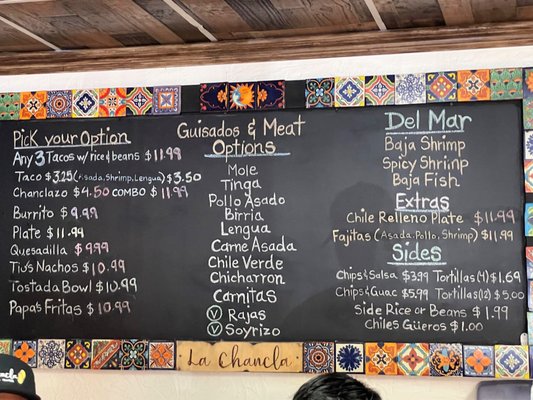 Pick your Option
Any 3 Tacos w/ rice & beans $11.99
Taco $3.25 (Asada, Shrimp, Lengua) $3.50
Chanclazo $4.50 combo $11.99
Burrito $9.99
Plate $11.99
Quesadilla $9.99
Tiu's Nachos $10.99
Tostada Bowl $10.99
Papa's Fritas $10.99
Guisados & Meat
Options
Mole
Tinga
Pollo Asado
Birria
Lengua
Carne Asada
Chile Verde
Chicharron
Carnitas
V Rajas
V Soyrizo
Del Mar
Baja Shrimp
Spicy Shrimp
Baja Fish
Extras
Chile Relleno Plate $11.99
Fajitas (Asada, Pollo, Shrimp) $11.99
Sides
Chips & Salsa $3.99 Tortillas (4) $1.69
Chips & Guac $5.99 Tortillas (12) $5.00
Side Rice or Beans $1.99
Chiles Güeros $1.00
La Chancla